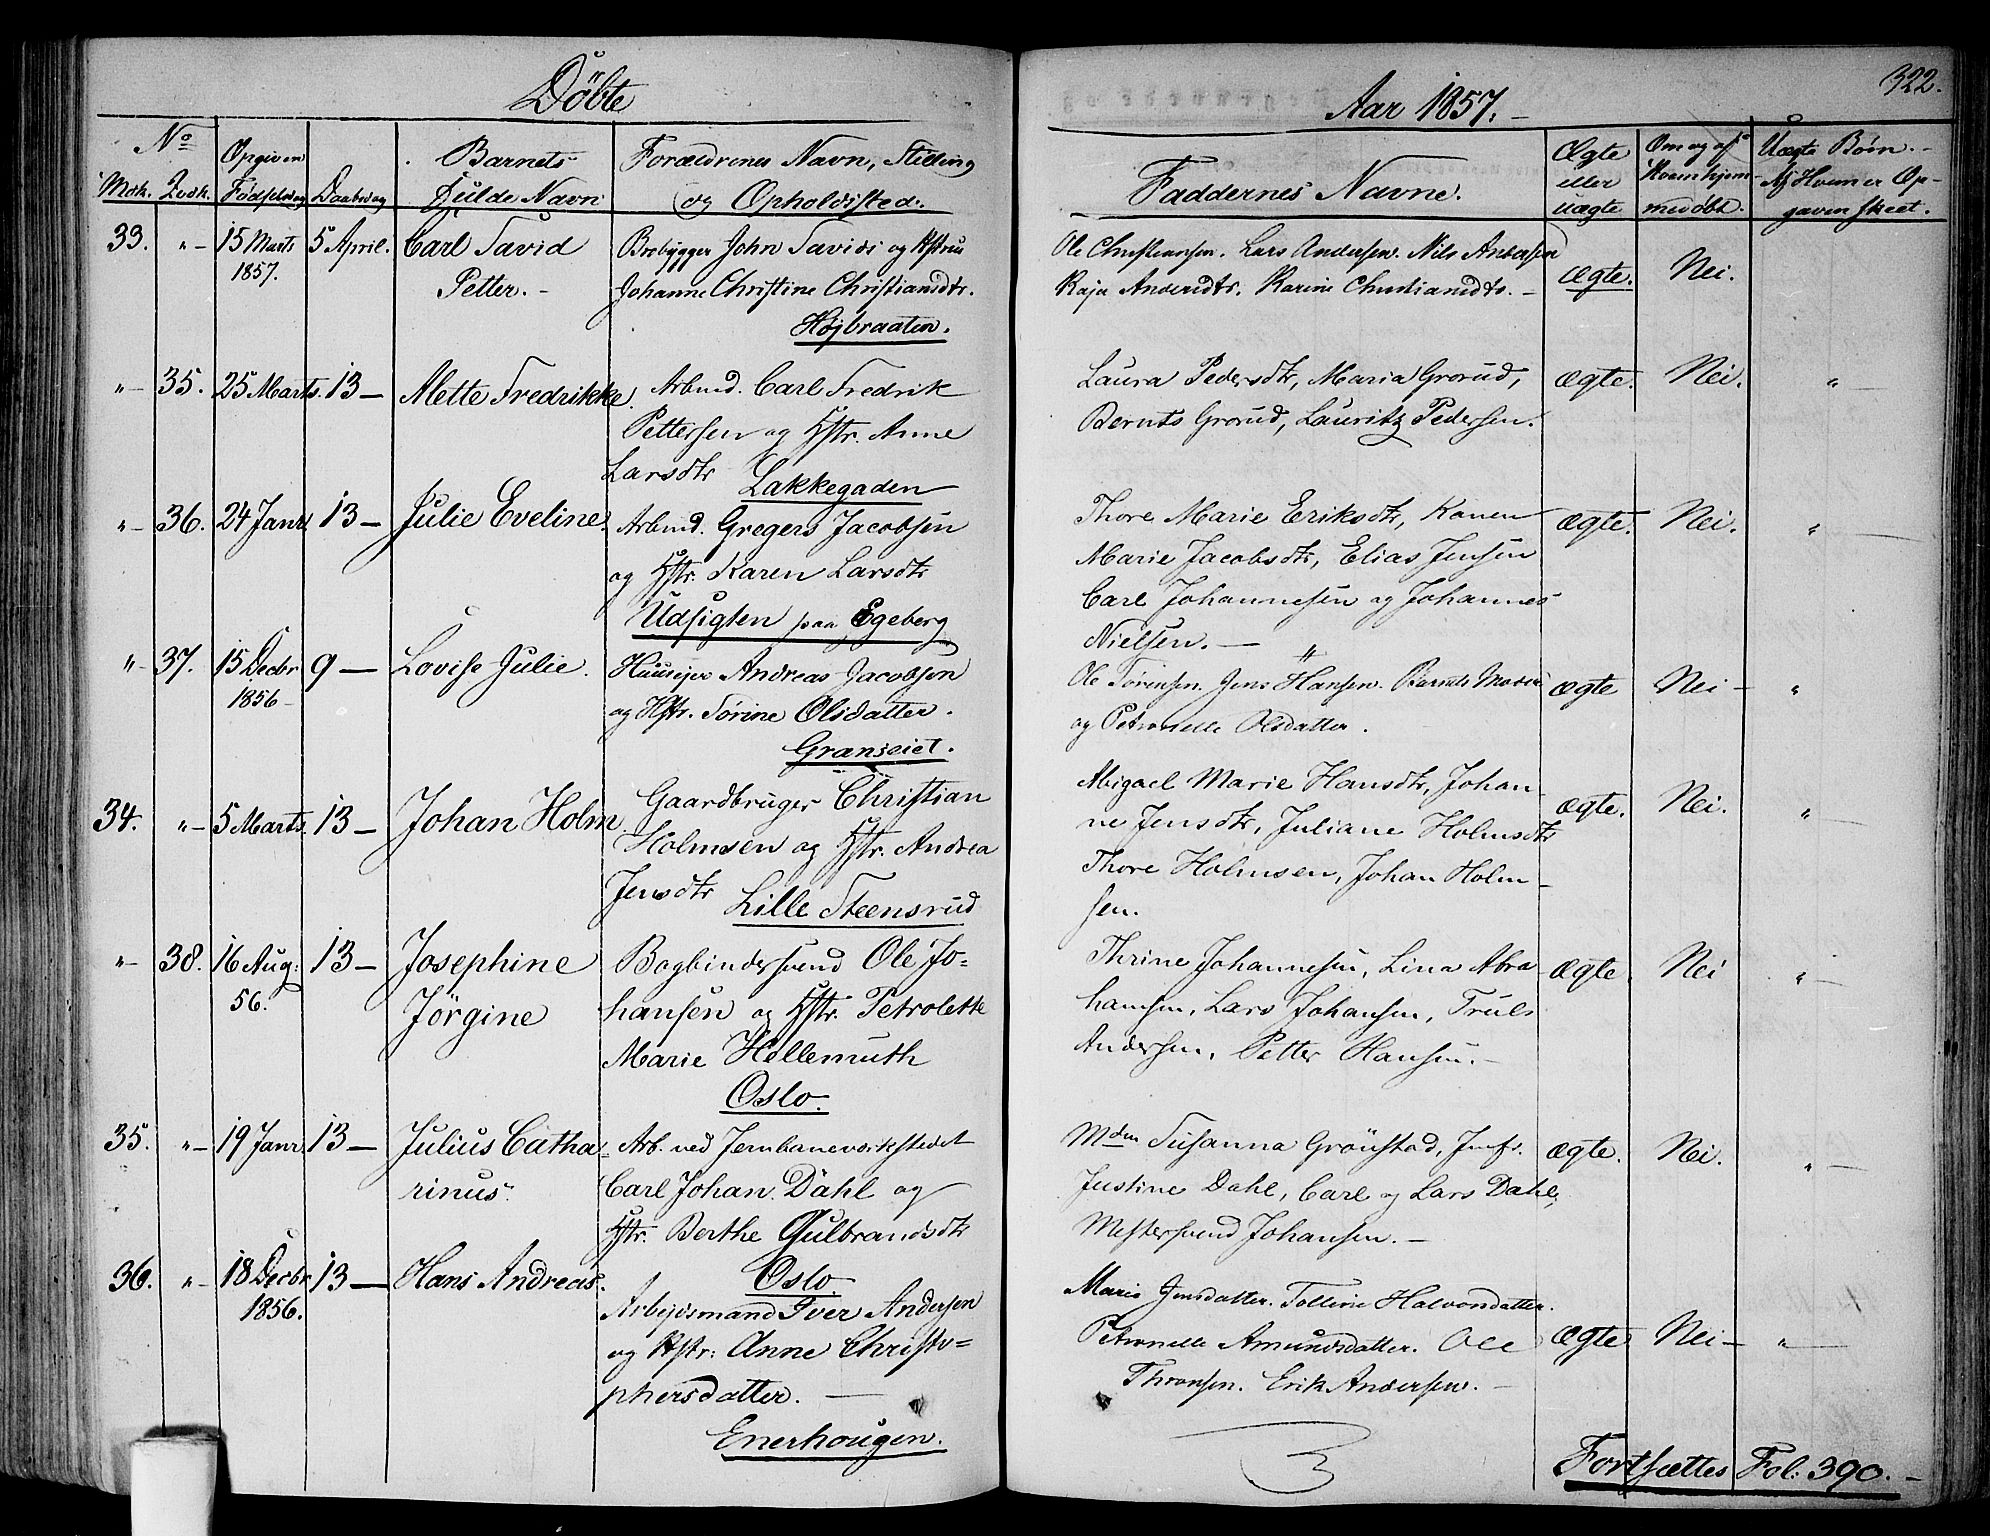 Döbte
No
Mdk. Qvdk.
Opgiven
Födselsdag
Daabsdag
Barnets
fulde Navn
Forældrenes Navn, Stilling
og Opholdssted.
33. „ 15 Marts 5 April. Carl David
1857.
Petter. –
Brobygger John Davids og Hstru
Johanne Christine Christiansdtr.
Højbraaten.
„ 35. 25 Marts. 13 – Mette Fredrikke.
Arbmd. Carl Fredrik
Pettersen og Hstr. Anne
Larsdtr
Lakkegaden
„ 36. 24 Janr 13 – Julie Eveline.
Arbmd. Gregers Jacobsen
og Hstr. Karen Larsdtr
Udsigten paa Egeberg
„ 37. 15 Decbr 9 – Lovise Julie.
1856 –
Huuseier Andreas Jacobsen
og Hstr. Sörine Olsdatter.
Grænseiet.
34. „ 5 Marts. 13 – Johan Holm.
Gaardbruger Christian
Holmsen og Hstr. Andrea
Jensdtr
Lille Steensrud
„ 38. 16 Aug: 13 – Josephine
56.
Jörgine
Bogbindersvend Ole Jo-
hansen og Hstr. Petrolette
Marie Hellemuth
Oslo.
35. „ 19 Janr 13 – Julius Catha-
rinus.
Arb. ved Jernbaneverkstedet
Carl Johan Dahl og
Hstr. Berthe Gulbrandsdtr
Oslo.
36. „ 18 Decbr 13 – Hans Andreas.
1856.
Arbejdsmand Iver Andersen
og Hstr: Anne Christo=
phersdatter. –
Enerhougen.
322.
Aar 1857. –
Faddernes Navne.
Ægte
eller
uægte
Om og af
Hvem hjem-
medöbt.
Uægte Börn. –
Af Hvem er Op-
gaven skeet.
Ole Christiansen. Lars Andersen. Nils Andersen
Kaja Andersdtr. Karine Christiansdtr. – Ægte. Nei.
Laura Pedersdtr, Maria Grorud, Ægte. Nei. „ –
Bernts Grorud, Lauritz Pedersen.
Thore Marie Eriksdtr, Karen Ægte. Nei. „ –
Marie Jacobsdtr, Elias Jensen
Carl Johannesen og Johannes
Nielsen. –
Ole Sörensen. Jens Hansen. Barnets Moder Ægte Nei – „
og Petronelle Olsdatter.
Abigael Marie Hansdtr, Johan- Ægte. Nei. „ –
ne Jensdtr, Juliane Holmsdtr
Thore Holmsen, Johan Holm-
sen.
Thrine Johannesen, Lina Abra- Ægte. Nei „ –
hamsen, Lars Johansen, Truls
Andersen, Petter Hansen. –
Mdm Susanna Grönstad, Jmfr. Ægte. Nei. „ –
Justine Dahl, Carl og Lars Dahl,
Mestersvend Johansen. –
Maria Jensdatter. Halvorsdatter.
Petronelle Amundsdatter. Ole Ægte Nei – „ –
Thronsen. Erik Andersen. –
Fortsættes Fol: 390. –